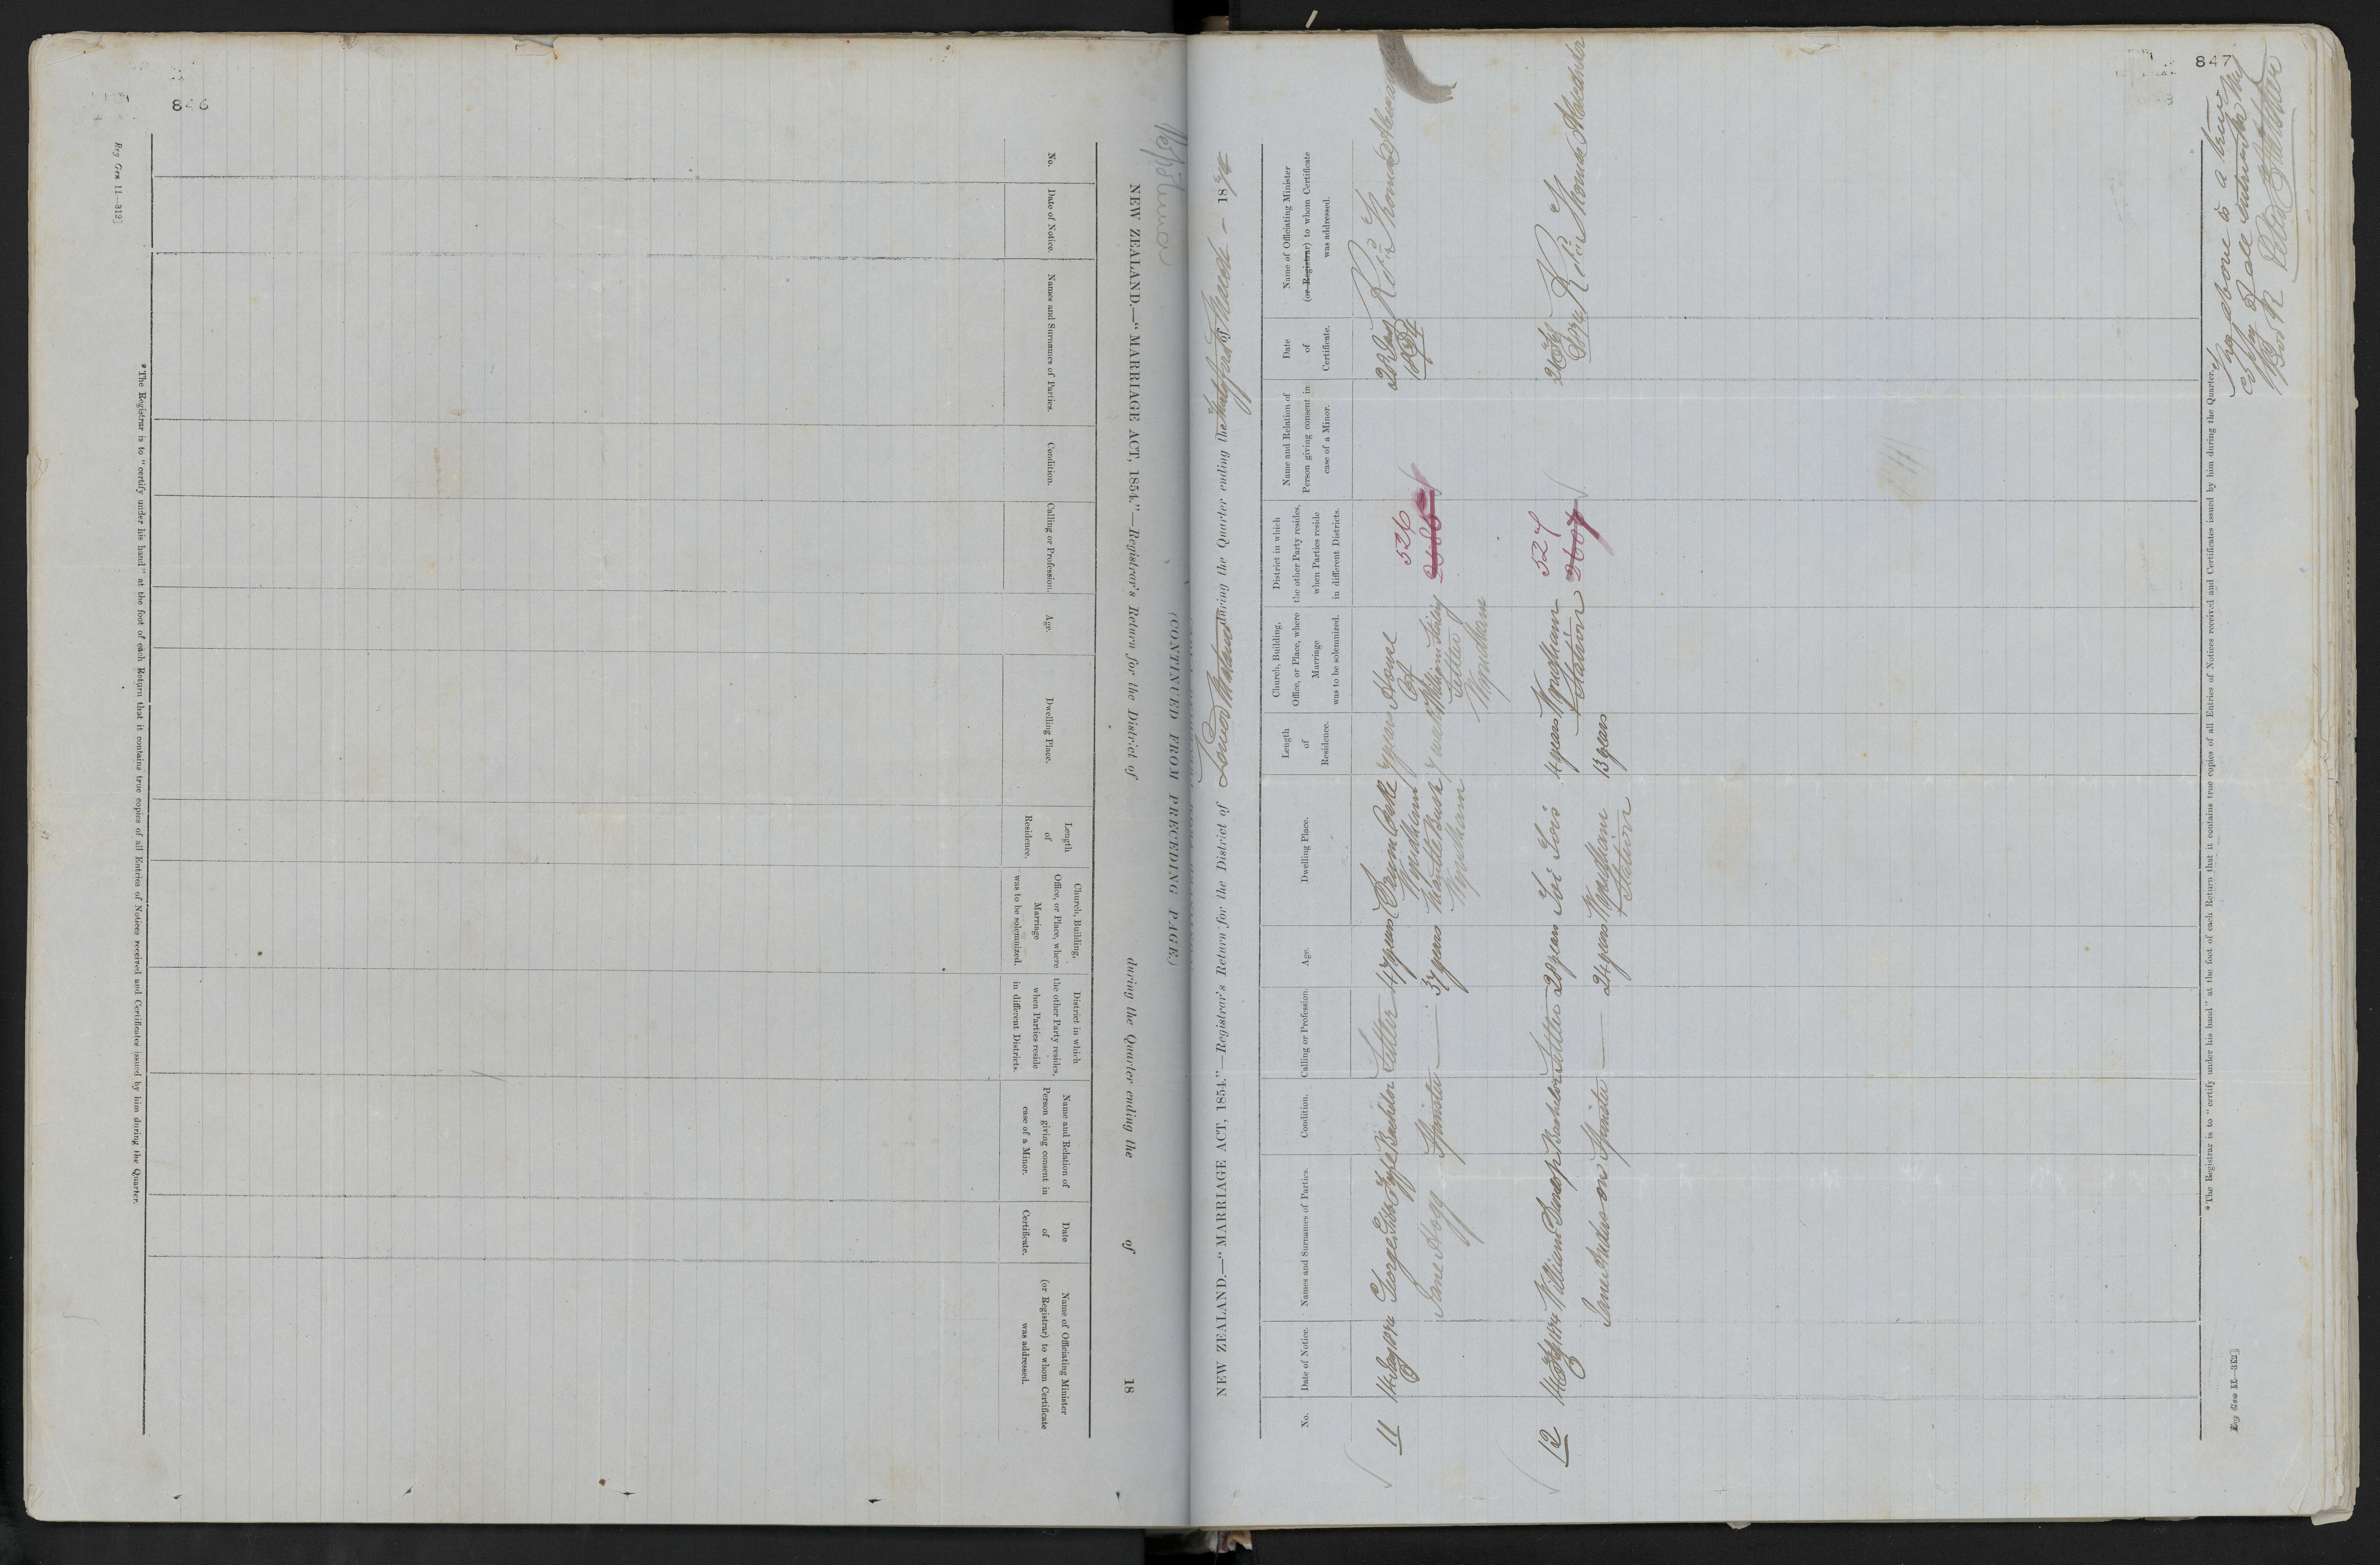 846
(CONTINUED FROM PRECEDING PAGE.)
NEW ZEALAND.—“MARRIAGE ACT, 1854.”—Registrar's Return for the District of during the Quarter ending the of 18
No.
Date of Notice.
Names and Surnames of Parties.
Condition.
Calling or Profession.
Age.
Dwelling Place.
Length
of
Residence.
Church, Building,
Office, or Place, where
Marriage
was to be solemnized.
District in which
the other Party resides,
when Parties reside
in different Districts.
Name and Relation of
Person giving consent in
case of a Minor.
Date
of
Certificate.
Name of Officiating Minister
(or Registrar) to whom Certificate
was addressed.
*The Registrar is to “certify under his hand” at the foot of each Return that it contains true copies of all Entries of Notices received and Certificates issued by him during the Quarter.
Reg Gen 11—312]
847
NEW ZEALAND.—“MARRIAGE ACT, 1854.”—Registrar's Return for the District of Lower Mataura during the Quarter ending the of March – 1874
No.
Date of Notice.
Names and Surnames of Parties.
Condition.
Calling or Profession.
Age.
Dwelling Place.
Length
of
Residence.
Church, Building,
Office, or Place, where
Marriage
was to be solemnized.
District in which
the other Party resides,
when Parties reside
in different Districts.
Name and Relation of
Person giving consent in
case of a Minor.
Date
of
Certificate.
Name of Officiating Minister
(or Registrar) to whom Certificate
was addressed.
11 George Gibb Fyfe Bachelor Settler 47 years 7 years House 526 Revd Thomas
Wyndham of 1874
Jane Hogg Spinster — 37 years Bush William
Wyndham Settler
Wyndham
12 William Dunlop Bachelor Settler 28 years Toi Tois 4 years Wyndham 527 Revd Thomas
Station
Jane Anderson Spinster — 24 years Wyndham 13 years
Station
*The Registrar is to “certify under his hand” at the foot of each Return that it contains true copies of all Entries of Notices received and Certificates issued by him during the Quarter.
Reg Gen 11—312]
The above is a true
copy of all entries in my